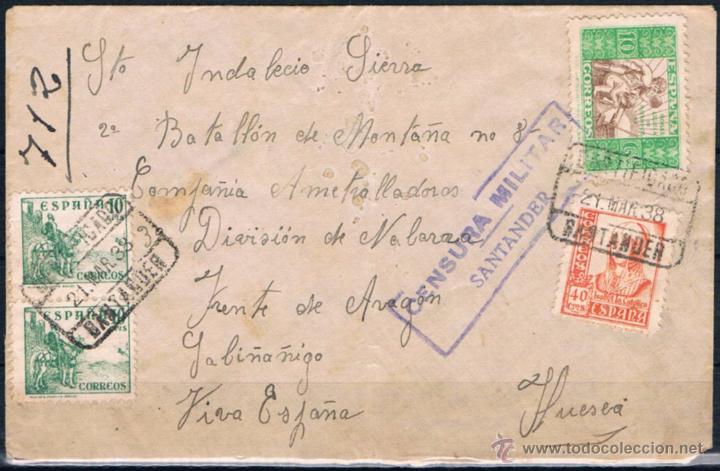 712
Sto Indalecio Sierra
2º Batallón de Montaña no 8
Compañia Ametrolladoras
División de Nabarra
Frente de Aragon
Sabiñañigo
Viva España
Huesca
CENSURA MILITAR
SANTANDER
10 ESPAÑA
CORREOS
CERTIFICADO
21.MAR.38
SANTANDER
40 CTS
Isabel la Católica
ESPAÑA
ESPAÑA 10
CTS
CORREOS
CERTIFICADO
21.MAR.38
SANTANDER
ESPAÑA 10
CTS
CORREOS
todocoleccion.net